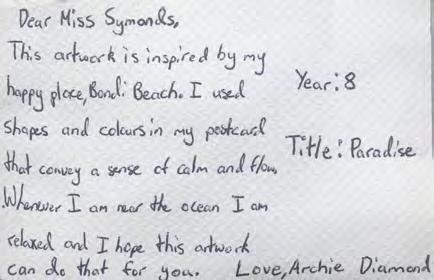 Dear Miss Symonds,
This artwork is inspired by my
happy place, Bondi Beach. I used
shapes and colours in my postcard
that convey a sense of calm and flow.
Whenever I am near the ocean I am
relaxed and I hope this artwork
can do that for you. Love, Archie Diamond
Year: 8
Title: Paradise